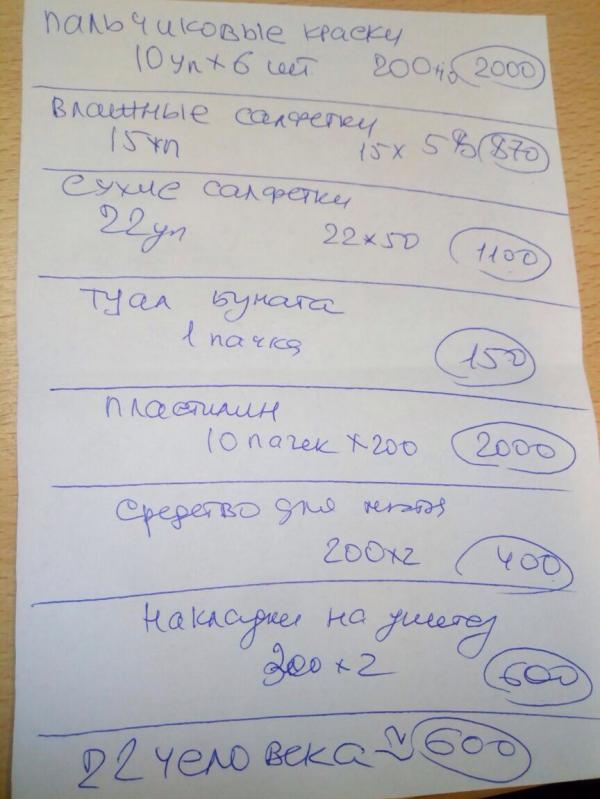 пальчиковые краски
10уп x 6 шт 200 2000
Влажные салфетки
15 15 x 58 870
Сухие салфетки
22уп 22 x 50 1100
туал бумага
1 пачка
150
пластилин
10 пачек x 200 2000
Средство для мытья
200 x 2 400
Накладки на унитаз
300 x 2 600
22 человека ~ 600